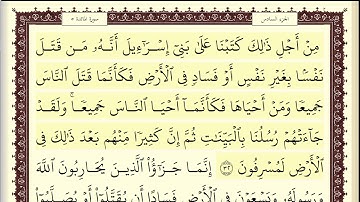 الجزء السادس سورة المائدة ٥
مِنْ أَجْلِ ذَٰلِكَ كَتَبْنَا عَلَىٰ بَنِىٓ إِسْرَٰٓءِيلَ أَنَّهُۥ مَن قَتَلَ
نَفْسًۢا بِغَيْرِ نَفْسٍ أَوْ فَسَادٍ فِى ٱلْأَرْضِ فَكَأَنَّمَا قَتَلَ ٱلنَّاسَ
جَمِيعًا وَمَنْ أَحْيَاهَا فَكَأَنَّمَآ أَحْيَا ٱلنَّاسَ جَمِيعًا ۚ وَلَقَدْ
جَآءَتْهُمْ رُسُلُنَا بِٱلْبَيِّنَٰتِ ثُمَّ إِنَّ كَثِيرًا مِّنْهُم بَعْدَ ذَٰلِكَ فِى
ٱلْأَرْضِ لَمُسْرِفُونَ ٣٢ إِنَّمَا جَزَٰٓؤُا۟ ٱلَّذِينَ يُحَارِبُونَ ٱللَّهَ
وَرَسُولَهُۥ وَيَسْعَوْنَ فِى ٱلْأَرْضِ فَسَادًا أَن يُقَتَّلُوٓا۟ أَوْ يُصَلَّبُوٓا۟